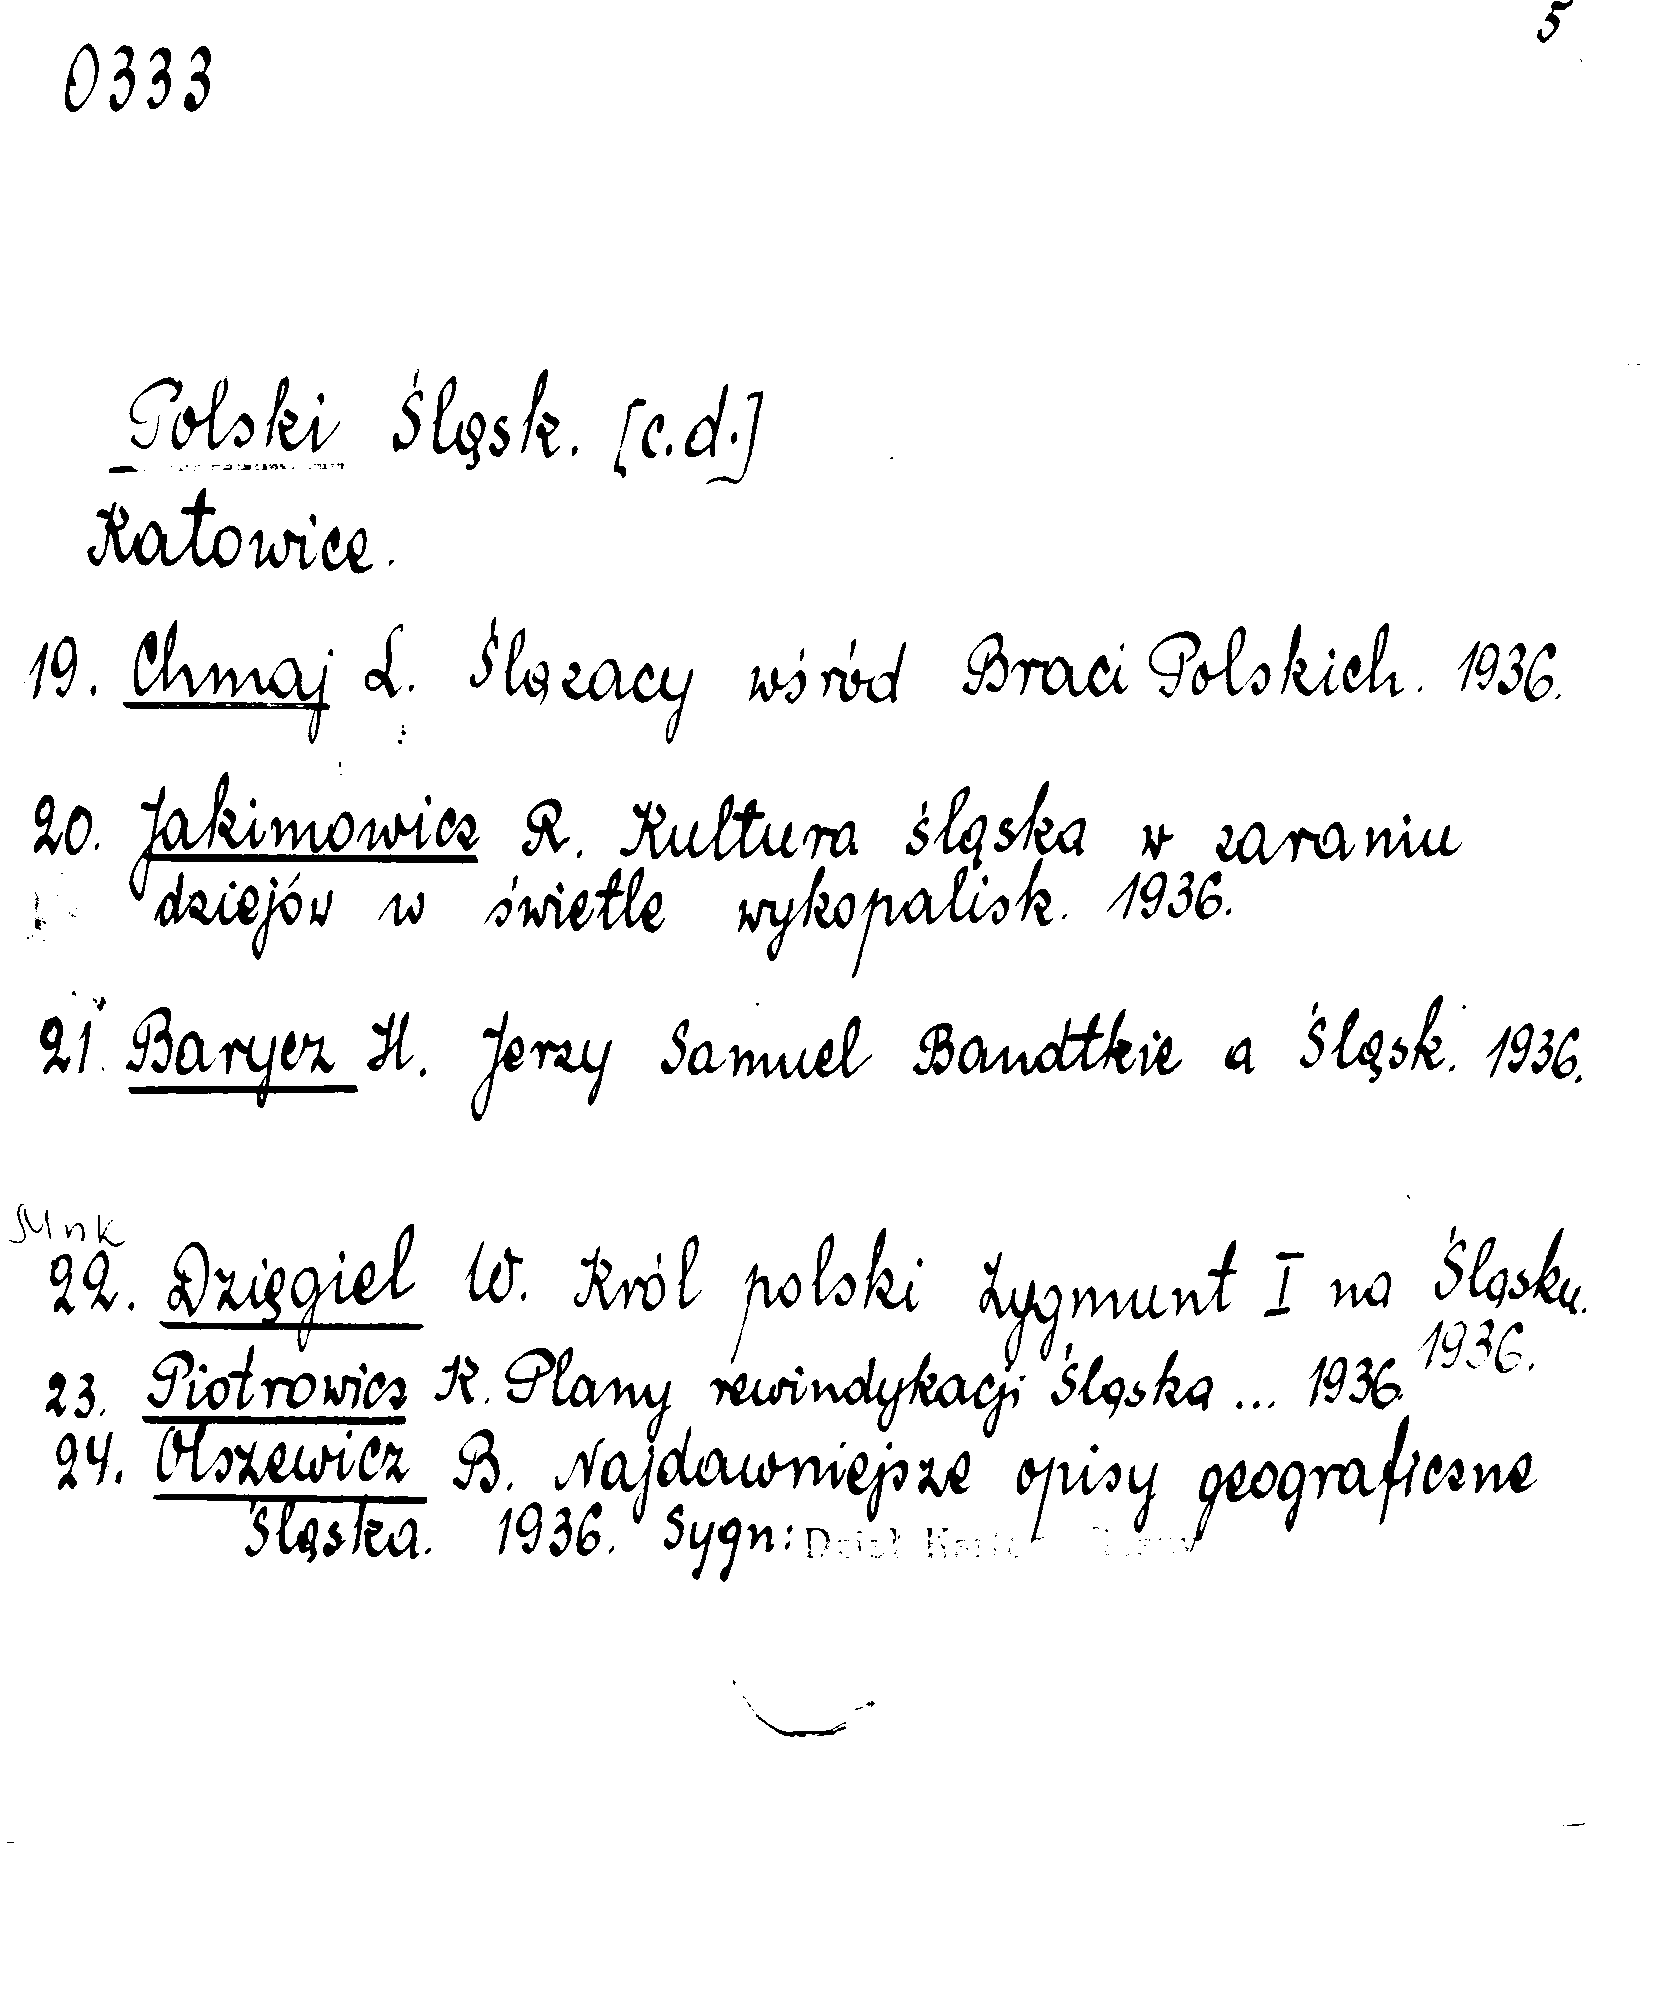 5
0333
Polski Śląsk. [c.d.]
Katowice.
19. Chmaj L. Ślązacy wśród Braci Polskich. 1936.
20. Jakimowicz R. Kultura śląska w zaraniu
dziejów w świetle wykopalisk. 1936.
21. Barycz H. Jerzy Samuel Bandtkie a Śląsk. 1936.
22. Dzięgiel W. Król polski Zygmunt I na Śląsku.
1936.
23. Piotrowicz K. Plany rewindykacji Śląska ... 1936.
24. Olszewicz B. Najdawniejsze opisy geograficzne
Śląska. 1936. Sygn: